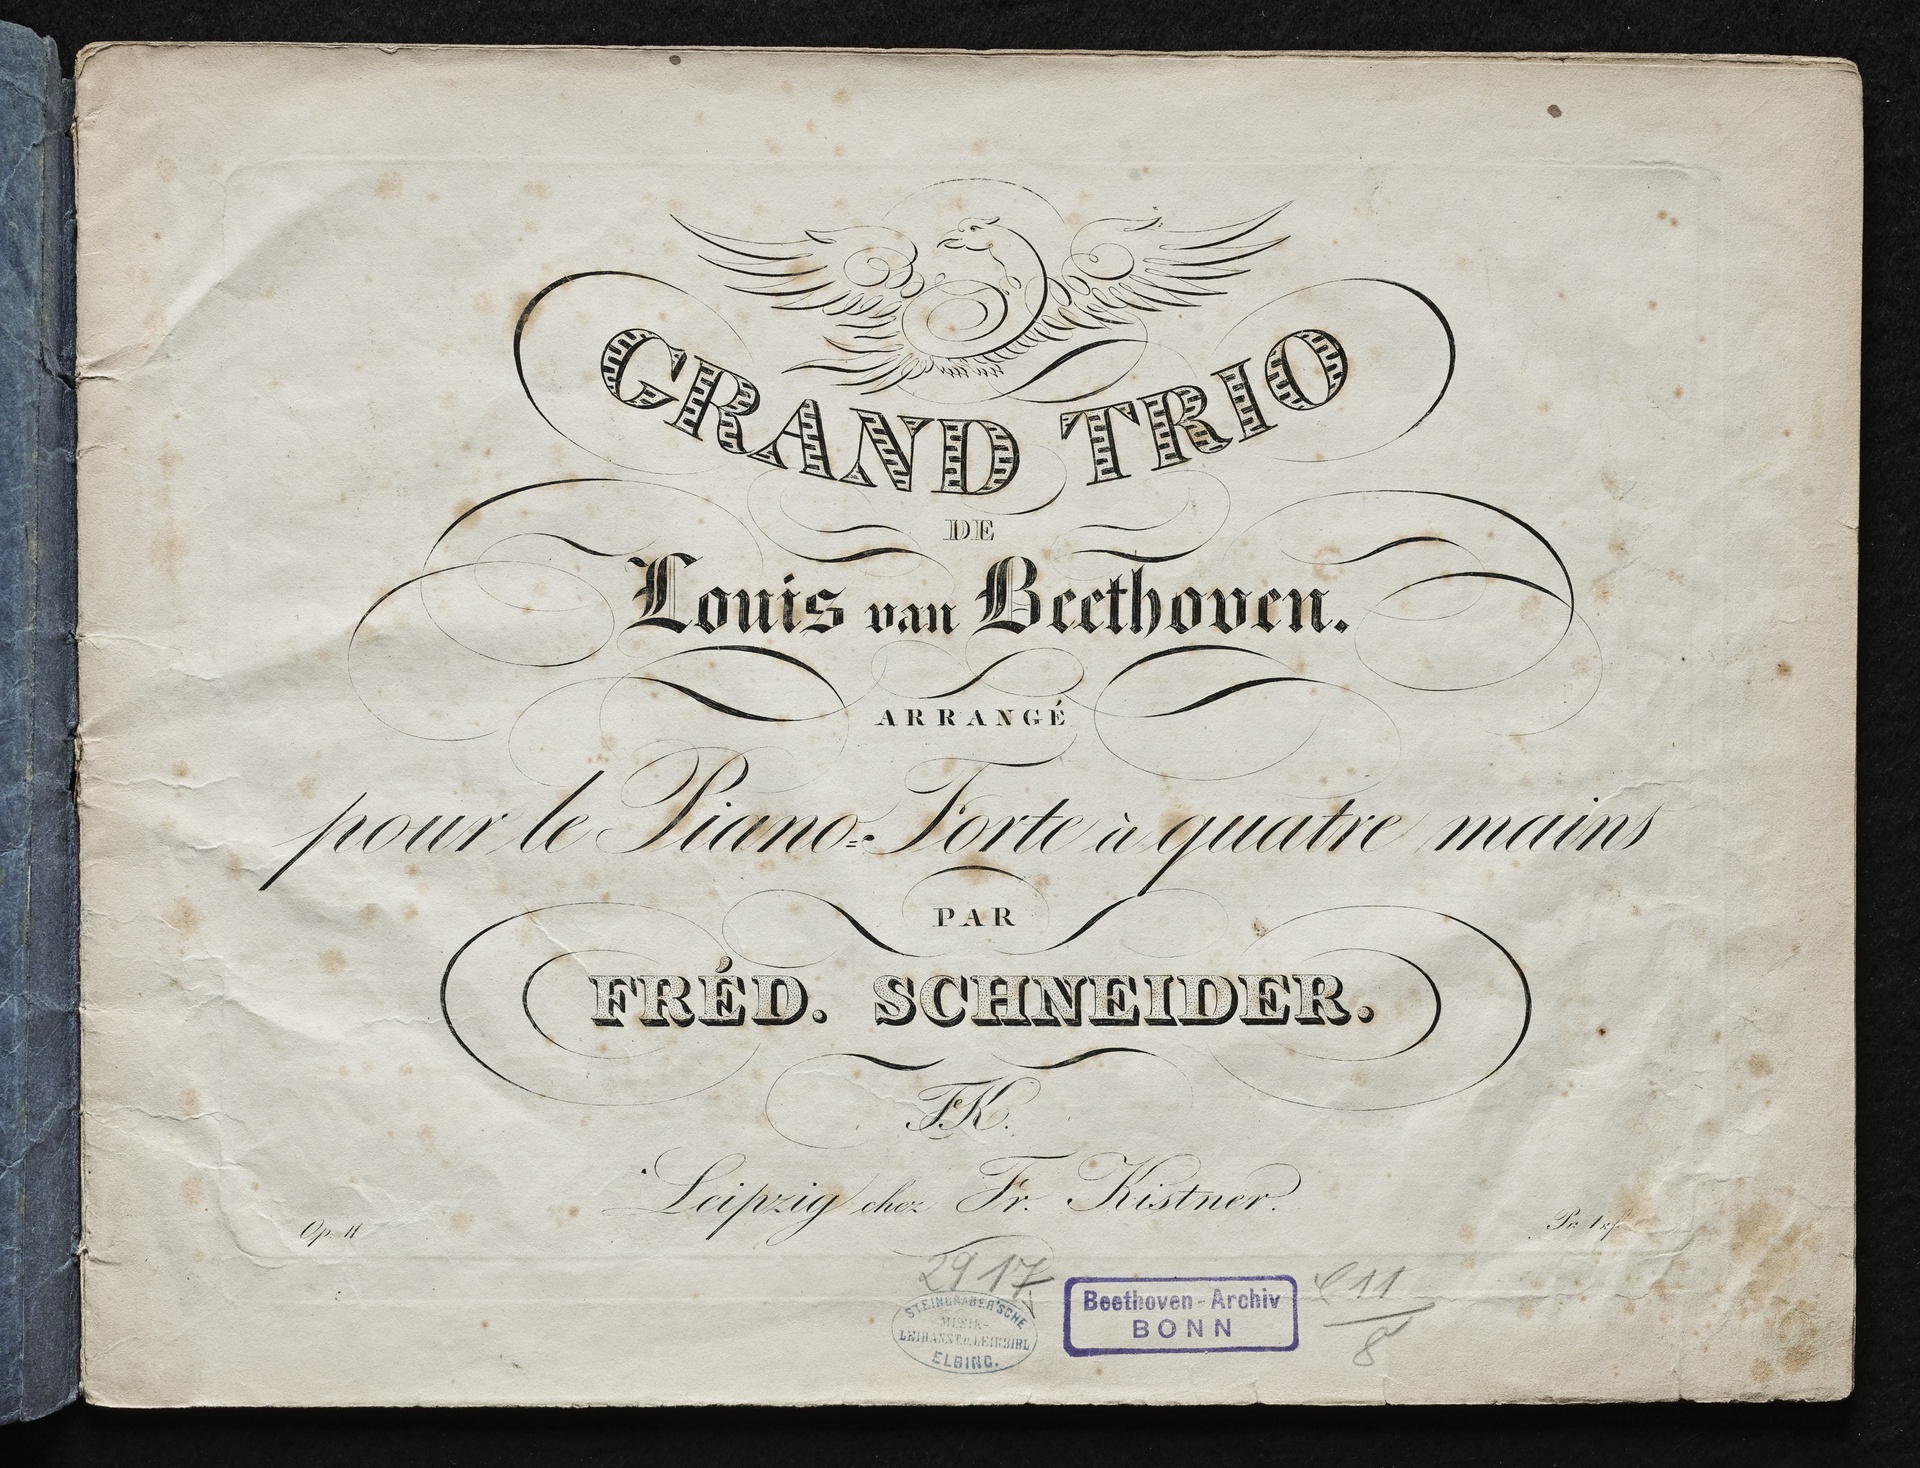 GRAND TRIO
DE
Louis van Beethoven.
ARRANGÉ
pour le Piano=Forte à quatre mains
PAR
FRÉD. SCHNEIDER.
FK.
Leipzig chez Fr. Kistner.
Op. 11
Pr. 1
2917
STEINGRÄBER'SCHE
MUSIK-
LEIHANST. u. LEIHBIBL
ELBING.
Beethoven-Archiv
BONN
C 11
8